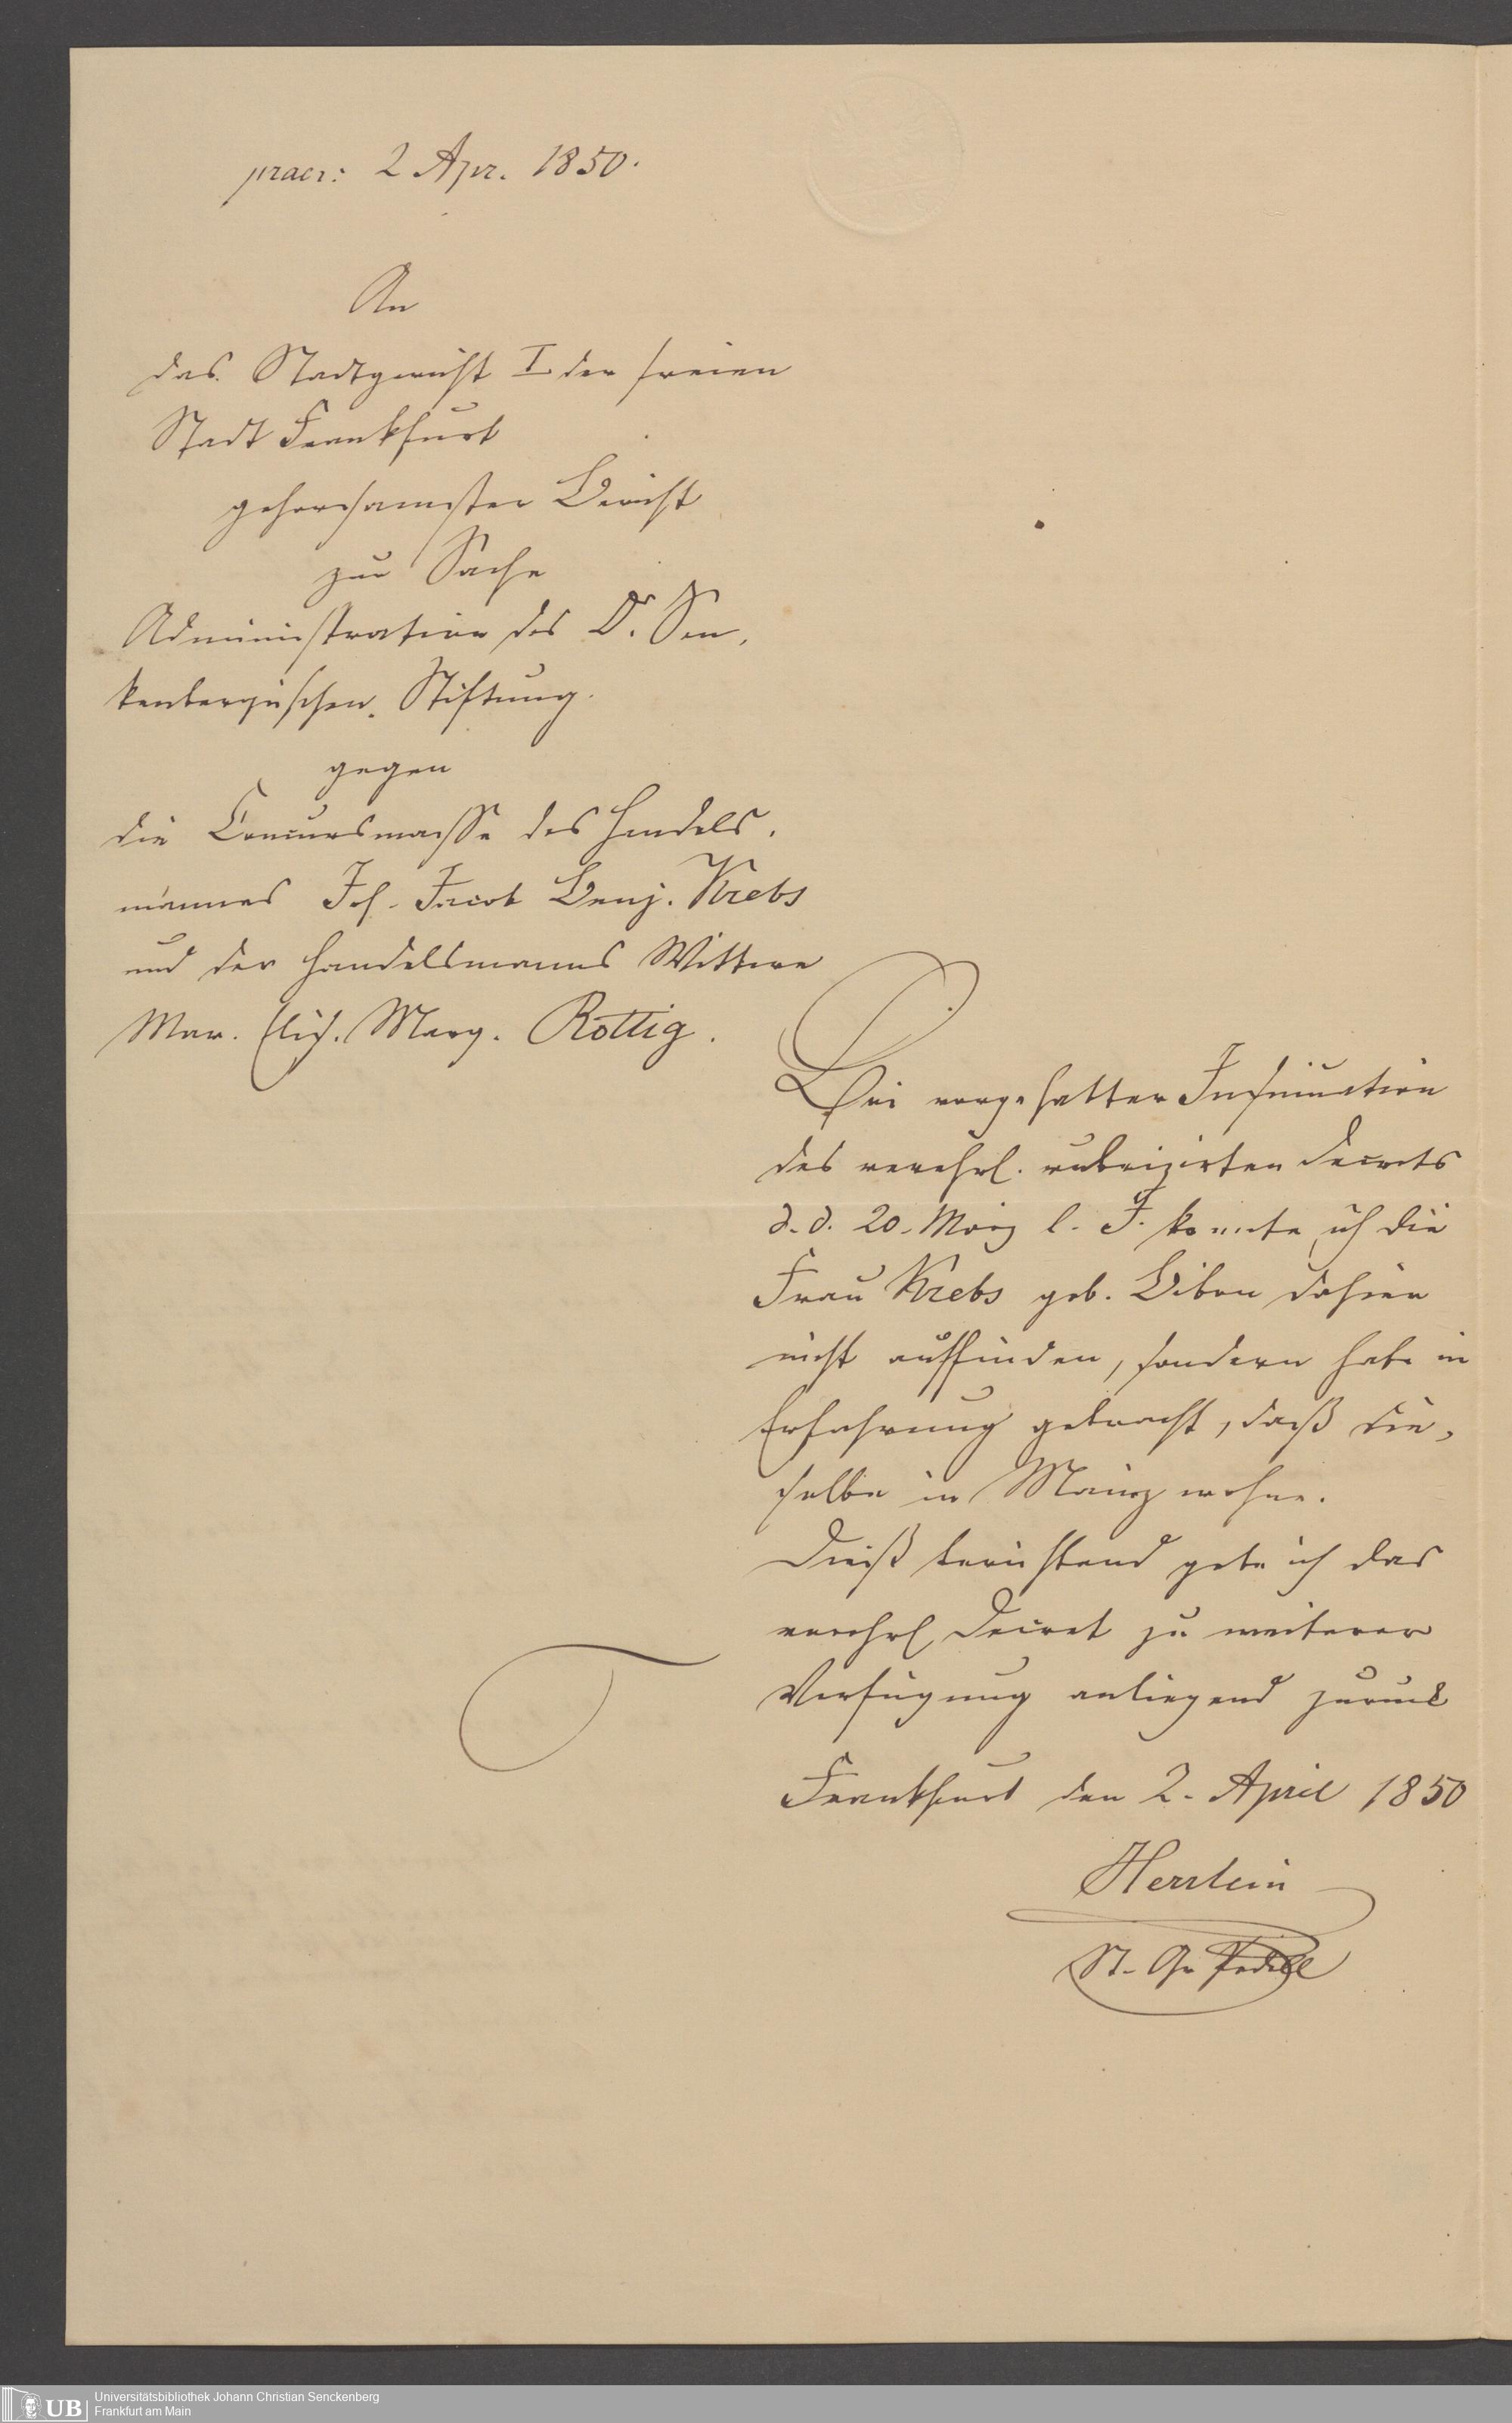 praes: 2 Apr. 1850.
An
das Stadtgericht I der freien
Stadt Frankfurt
gehorsamster Bericht
zur Sache
Administration des Dr. Sen,
kenbergischen Stiftung.
gegen
die Concursmasse des Handels,
mannes Joh. Jacob Benj. Krebs
und der Handelsmanns Wittwe
Mar. Elis. Marg. Rottig.
Bei vorgehabter Insinuation
des verehrl. rubrizirten Decrets
d. d. 20. März l. J. konnte ich die
Frau Krebs geb. dahier
nicht auffinden, sondern habe in
Erfahrung gebracht, daß die,
selbe in Mainz wohne.
Dieß berichtend gebe ich das
verehrl. Decret zu weiterer
Verfügung anliegend zurück
Frankfurt den 2. April 1850
Herrlein
St. G. Pedell
UB
Universitätsbibliothek Johann Christian Senckenberg
Frankfurt am Main